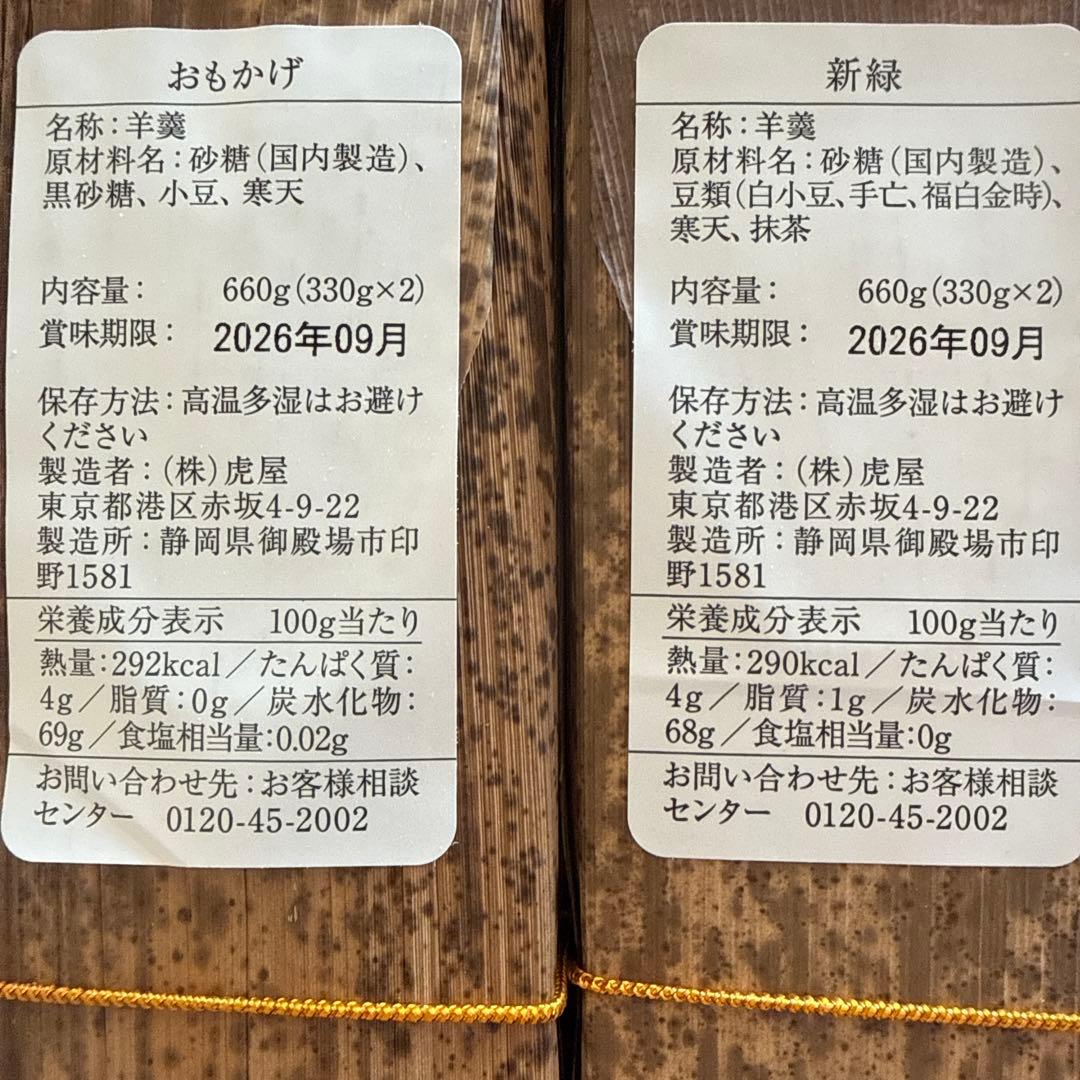 おもかげ
名称：羊羹
原材料名：砂糖（国内製造）、
黒砂糖、小豆、寒天
内容量： 660g（330g×2）
賞味期限： 2026年09月
保存方法：高温多湿はお避け
ください
製造者：（株）虎屋
東京都港区赤坂4-9-22
製造所：静岡県御殿場市印
野1581
栄養成分表示 100g当たり
熱量：292kcal／たんぱく質：
4g／脂質：0g／炭水化物：
69g／食塩相当量：0.02g
お問い合わせ先：お客様相談
センター 0120-45-2002
新緑
名称：羊羹
原材料名：砂糖（国内製造）、
豆類（白小豆、手亡、福白金時）、
寒天、抹茶
内容量： 660g（330g×2）
賞味期限： 2026年09月
保存方法：高温多湿はお避け
ください
製造者：（株）虎屋
東京都港区赤坂4-9-22
製造所：静岡県御殿場市印
野1581
栄養成分表示 100g当たり
熱量：290kcal／たんぱく質：
4g／脂質：1g／炭水化物：
68g／食塩相当量：0g
お問い合わせ先：お客様相談
センター 0120-45-2002